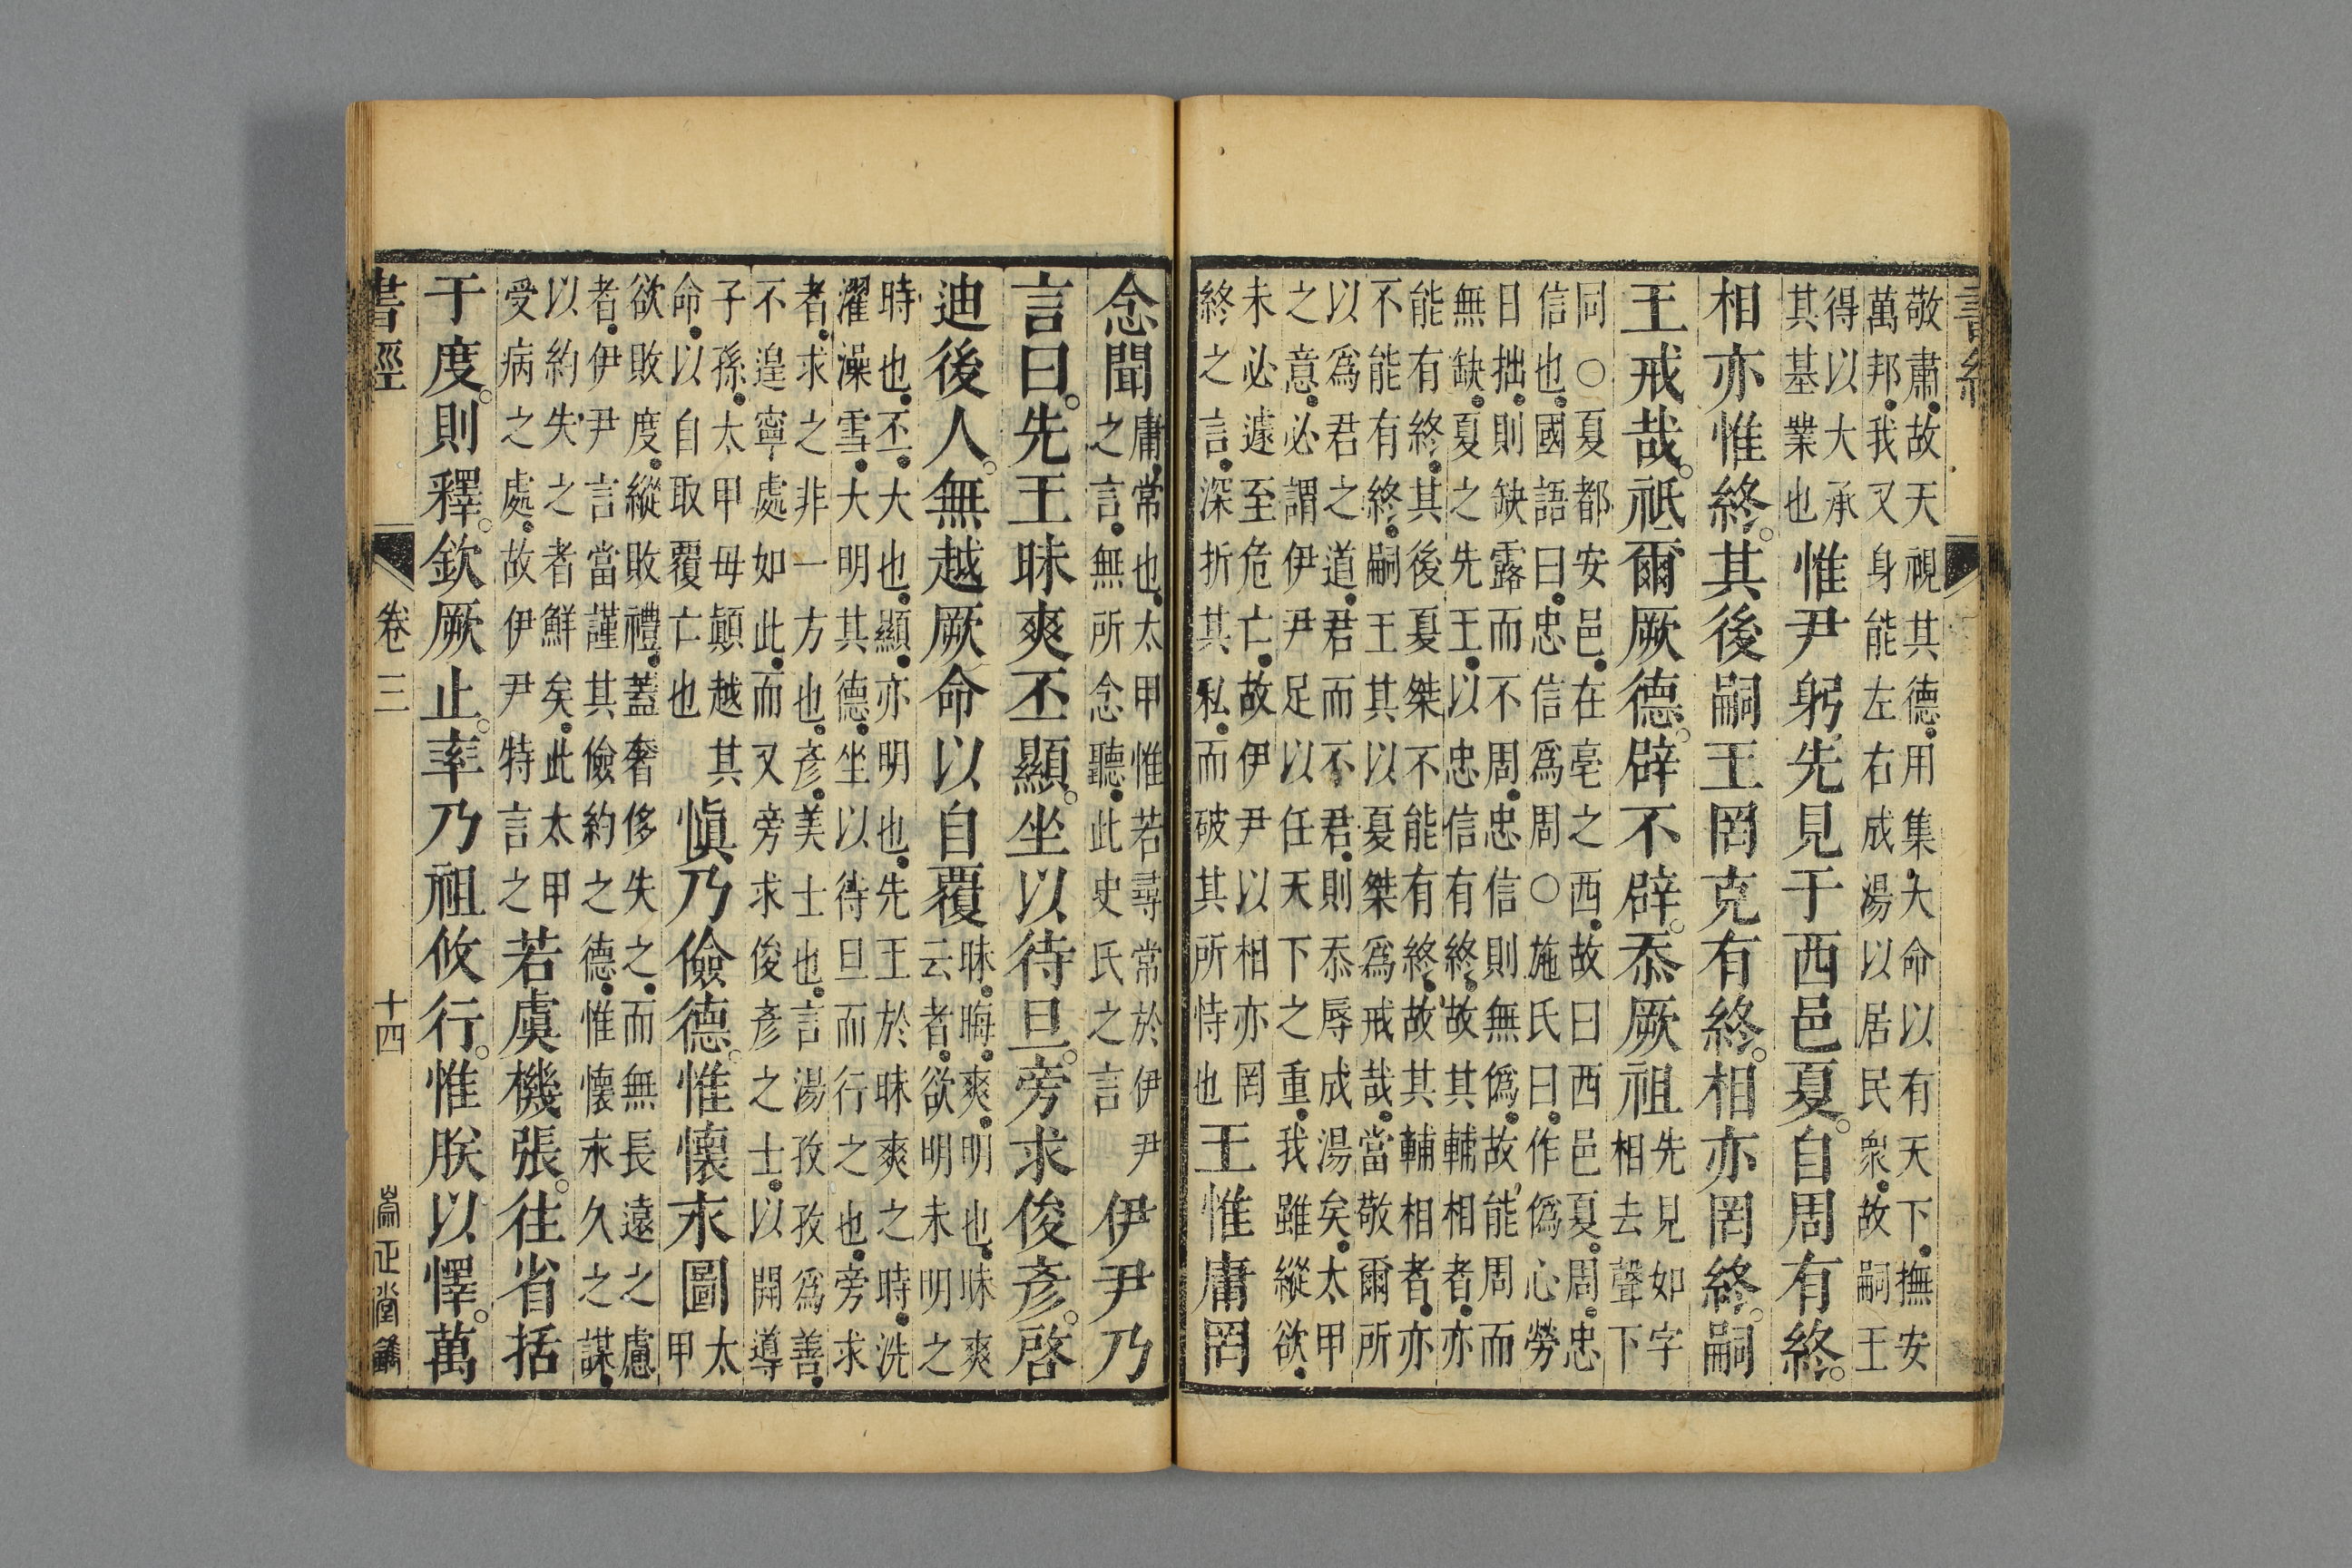 書經
敬肅故天視其德用集大命以有天下撫安
萬邦我又身能左右成湯以居民衆故嗣王
得以大承
其基業也
惟尹躬先見于西邑夏。自周有終。
相亦惟終。其後嗣王罔克有終。相亦罔終。嗣
王戒哉。祗爾厥德。辟不辟。忝厥祖
先見如字
相去聲下
同○夏都安邑在亳之西故曰西邑夏周忠
信也國語曰忠信爲周○施氏曰作僞心勞
日拙則缺露而不周忠信則無僞故能周而
無缺夏之先王以忠信有終故其輔相者亦
能有終其後夏桀不能有終故其輔相者亦
不能有終嗣王其以夏桀爲戒哉當敬爾所
以爲君之道君而不君則忝辱成湯矣太甲
之意必謂伊尹足以任天下之重我雖縱欲
未必遽至危亡故伊尹以相亦罔
終之言深折其私而破其所恃也
王惟庸罔
念聞
庸常也太甲惟若尋常於伊尹
之言無所念聽此史氏之言
伊尹乃
言曰。先王昧爽丕顯。坐以待旦。旁求俊彥。啓
迪後人。無越厥命以自覆
昧晦爽明也昧爽
云者欲明未明之
時也丕大也顯亦明也先王於昧爽之時洗
濯澡雪大明其德坐以待旦而行之也旁求
者求之非一方也彥美士也言湯孜孜爲善
不遑寧處如此而又旁求俊彥之士以開導
子孫太甲毋顚越其
命以自取覆亡也
愼乃儉德。惟懷永圖
太
甲
欲敗度縱敗禮蓋奢侈失之而無長遠之慮
者伊尹言當謹其儉約之德惟懷永久之謀
以約失之者鮮矣此太甲
受病之處故伊尹特言之
若虞機張。往省括
于度。則釋。欽厥止。率乃祖攸行。惟朕以懌。萬
書經
卷三
十四
崇正堂鐫